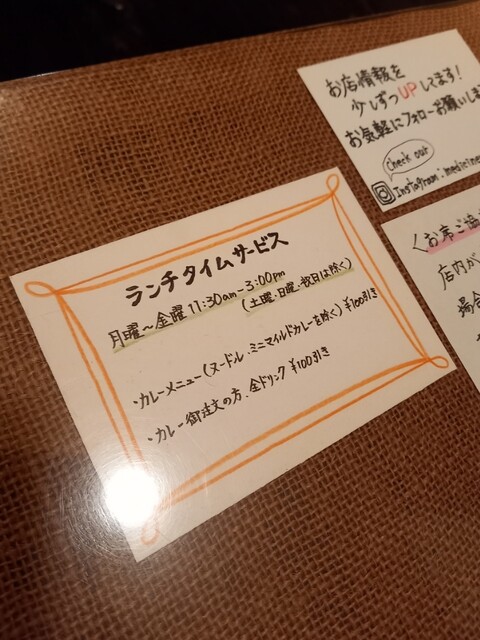 ランチタイムサービス
月曜～金曜 11:30am-3:00pm
(土曜・日曜・祝日は除く)
・カレーメニュー(ヌードル・ミニマイルドカレーを除く)¥100引き
・カレー御注文の方、全ドリンク¥100引き
お店情報を
少しずつUPしてます!
お気軽にフォローお願いしま
Check out
Instagram:medicine
〈お席ご協
店内が
場合